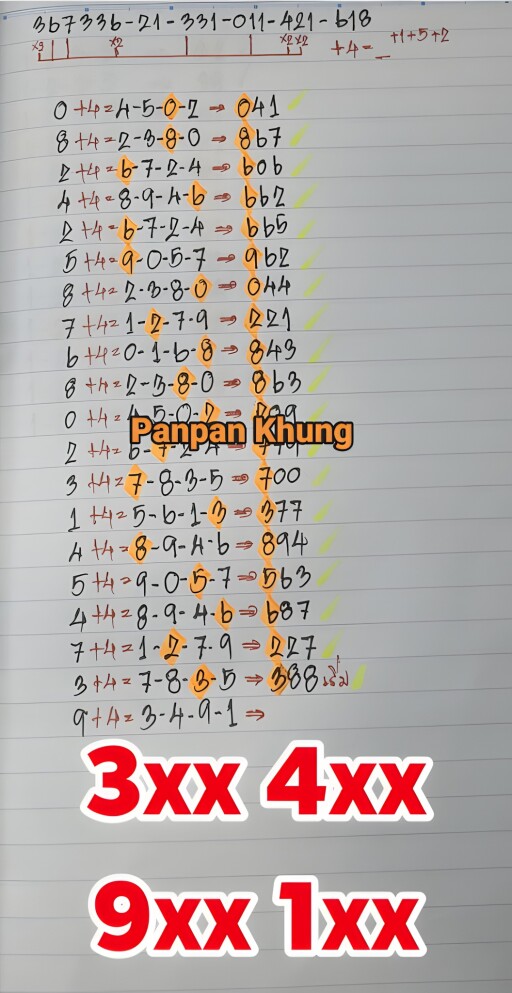 367336-21-331-011-421-618
x9 x2 x2 x2 +4 = +1+5+2
0 +4 = 4-5-0-2 ⇒ 041
8 +4 = 2-3-8-0 ⇒ 867
2 +4 = 6-7-2-4 ⇒ 606
4 +4 = 8-9-4-6 ⇒ 662
2 +4 = 6-7-2-4 ⇒ 665
5 +4 = 9-0-5-7 ⇒ 962
8 +4 = 2-3-8-0 ⇒ 044
7 +4 = 1-2-7-9 ⇒ 221
6 +4 = 0-1-6-8 ⇒ 843
8 +4 = 2-3-8-0 ⇒ 863
0 +4 = 4-5-0-2 ⇒
Panpan Khung
2 +4 = 6-7-2-4 ⇒
3 +4 = 7-8-3-5 ⇒ 700
1 +4 = 5-6-1-3 ⇒ 377
4 +4 = 8-9-4-6 ⇒ 894
5 +4 = 9-0-5-7 ⇒ 563
4 +4 = 8-9-4-6 ⇒ 687
7 +4 = 1-2-7-9 ⇒ 227
3 +4 = 7-8-3-5 ⇒ 388 เริ่ม
9 +4 = 3-4-9-1 ⇒
3xx 4xx
9xx 1xx